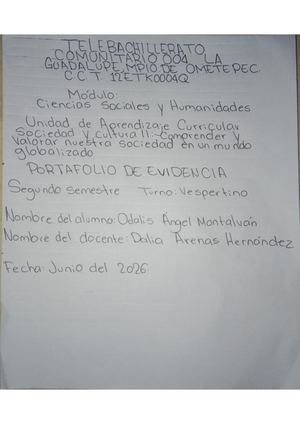 TELEBACHILLERATO
COMUNITARIO 004 LA
GUADALUPE, MPIO DE OMETEPEC.
C.C.T 12ETK0004Q
Módulo:
Ciencias Sociales y Humanidades
Unidad de Aprendizaje Curricular
Sociedad y cultura II:-Comprender y
valorar nuestra sociedad en un mundo
globalizado
PORTAFOLIO DE EVIDENCIA
Segundo semestre Turno: Vespertino
Nombre del alumno: Odalis Ángel Montalván
Nombre del docente: Dalia Arenas Hernández
Fecha: Junio del 2026